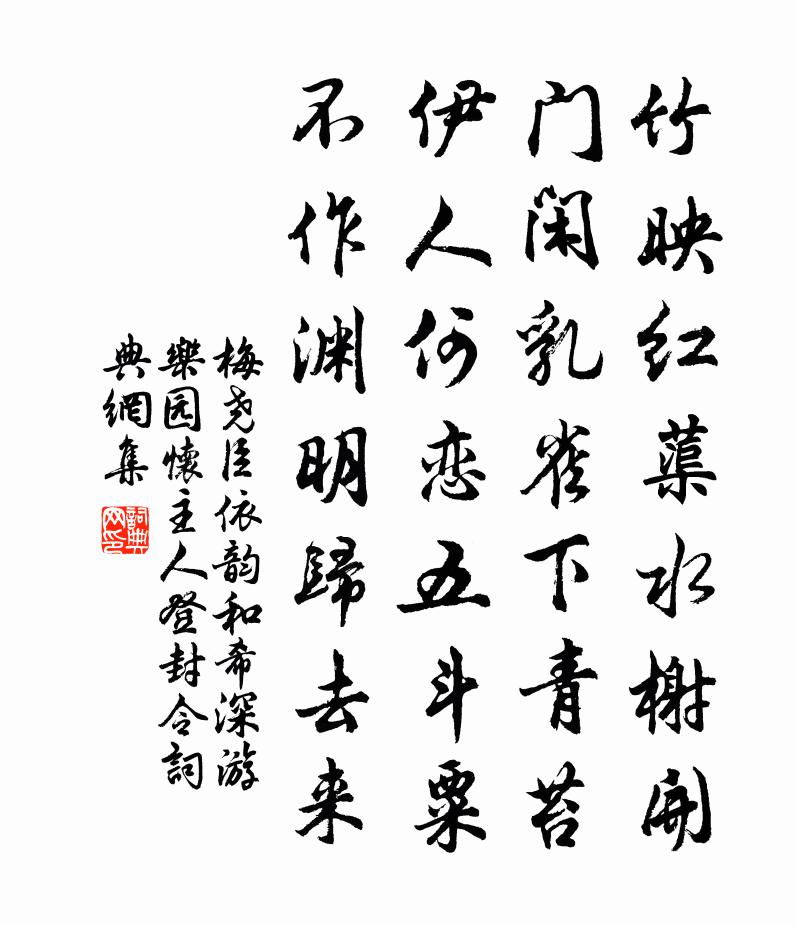 竹映红蕖水榭開
门闲乳雀下青苔
伊人何恋五斗粟
不作渊明歸去来
梅尧臣依韵和希深游
樂园懷主人登封令詞
典網集
詞典網印